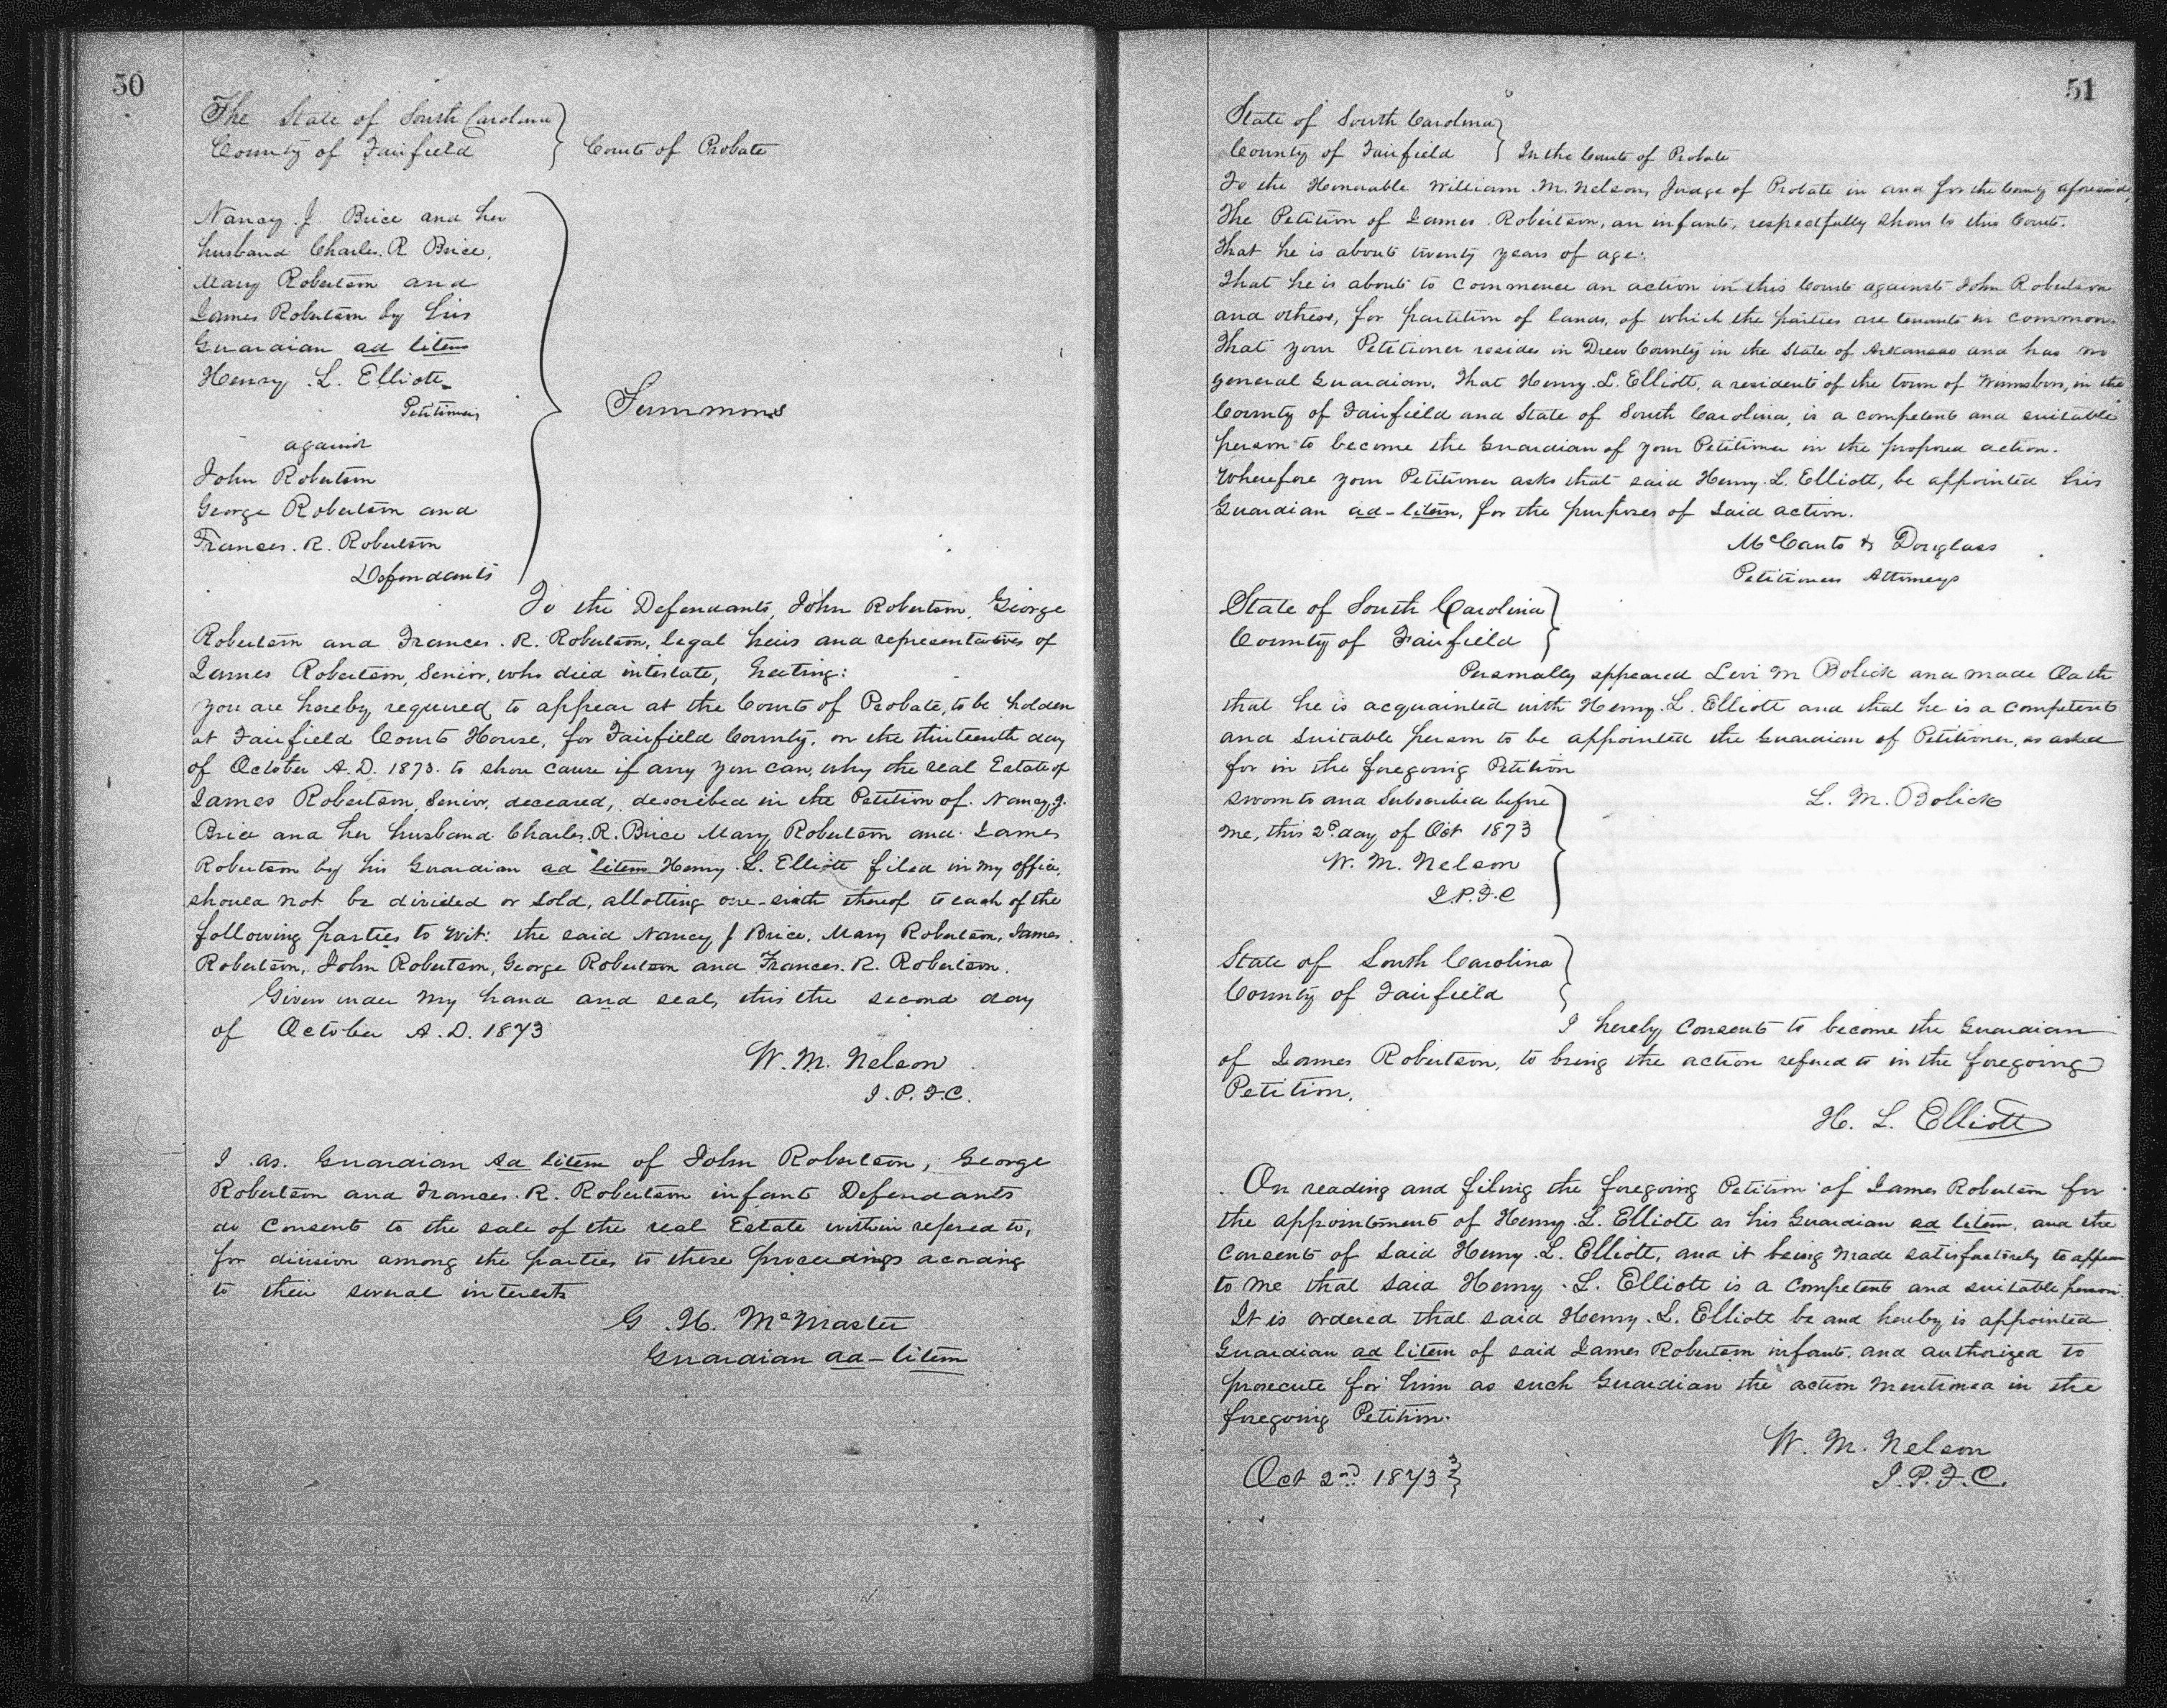 50
The State of South Carolina
County of Fairfield } Court of Probate
Nancy J. Brice and her
husband Charles. R Brice,
Mary Robertson and
James Robertson by his
Guardian ad litem
Henry. L. Elliott
Petitioners
against
John Robertson
George Robertson and
Frances. R. Robertson
Defendants
Summons
To the Defendants, John Robertson, George
Robertson and Frances. R. Robertson, legal heirs and representatives of
James Robertson, Senior, who died intestate, Greeting:
You are hereby required to appear at the Court of Probate, to be holden
at Fairfield Court House, for Fairfield County, on the thirteenth day
of October A.D. 1873. to show cause if any you can, why the real Estate of
James Robertson, Senior, deceased, described in the Petition of. Nancy. J.
Brice and her husband Charles. R. Brice Mary Robertson and James
Robertson by his Guardian ad litem Henry. L. Elliott filed in my office,
should not be divided or sold, allotting one-sixth thereof to each of the
following parties to wit: the said Nancy J Brice, Mary Robertson, James
Robertson, John Robertson, George Robertson and Frances. R. Robertson.
Given under my hand and seal, this the second day
of October A.D. 1873
W. M. Nelson
J. P. F. C.
I as. Guardian ad litem of John Robertson, George
Robertson and Frances. R. Robertson infant Defendants
do consent to the sale of the real Estate within refered to,
for division among the parties to these proceedings acording
to their several interests
G. H. McMaster
Guardian ad-litem
51
State of South Carolina
County of Fairfield } In the Court of Probate
To the Honorable William. M. Nelson, Judge of Probate in and for the County aforesaid,
The Petition of James Robertson, an infant, respectfully shows to this Court.
That he is about twenty years of age.
That he is about to commence an action in this Court against John Robertson
and others, for partition of lands, of which the parties are tenants in common.
That your Petitioner resides in Drew County in the State of Arkansas and has no
general Guardian. That Henry. L. Elliott, a resident of the town of Winnsboro, in the
County of Fairfield and State of South Carolina, is a competent and suitable
person to become the Guardian of your Petitioner in the proposed action.
Wherefore your Petitioner asks that said Henry. L. Elliott, be appointed his
Guardian ad-litem, for the purposes of said action.
McCants & Douglass
Petitioners Attorneys
State of South Carolina
County of Fairfield }
Personally appeared Levi M Bolick and made Oath
that he is acquainted with Henry. L. Elliott and that he is a competent
and suitable person to be appointed the Guardian of Petitioner, as asked
for in the foregoing Petition
L. M. Bolick
Sworn to and Subscribed before
me, this 2d day of Oct 1873
W. M. Nelson
J. P. F. C
State of South Carolina
County of Fairfield }
I hereby consent to become the Guardian
of James Robertson, to bring the action refered to in the foregoing
Petition.
H. L. Elliott
On reading and filing the foregoing Petition of James Robertson for
the appointment of Henry. L. Elliott as his Guardian ad litem, and the
consent of said Henry. L. Elliott, and it being made satisfactorily to appear
to me that said Henry. L. Elliott is a competent and suitable person.
It is ordered that said Henry. L. Elliott be and hereby is appointed
Guardian ad litem of said James Robertson infant, and authorized to
prosecute for him as such Guardian the action mentioned in the
foregoing Petition.
W. M. Nelson
J. P. F. C.
Oct 2nd 1873 }